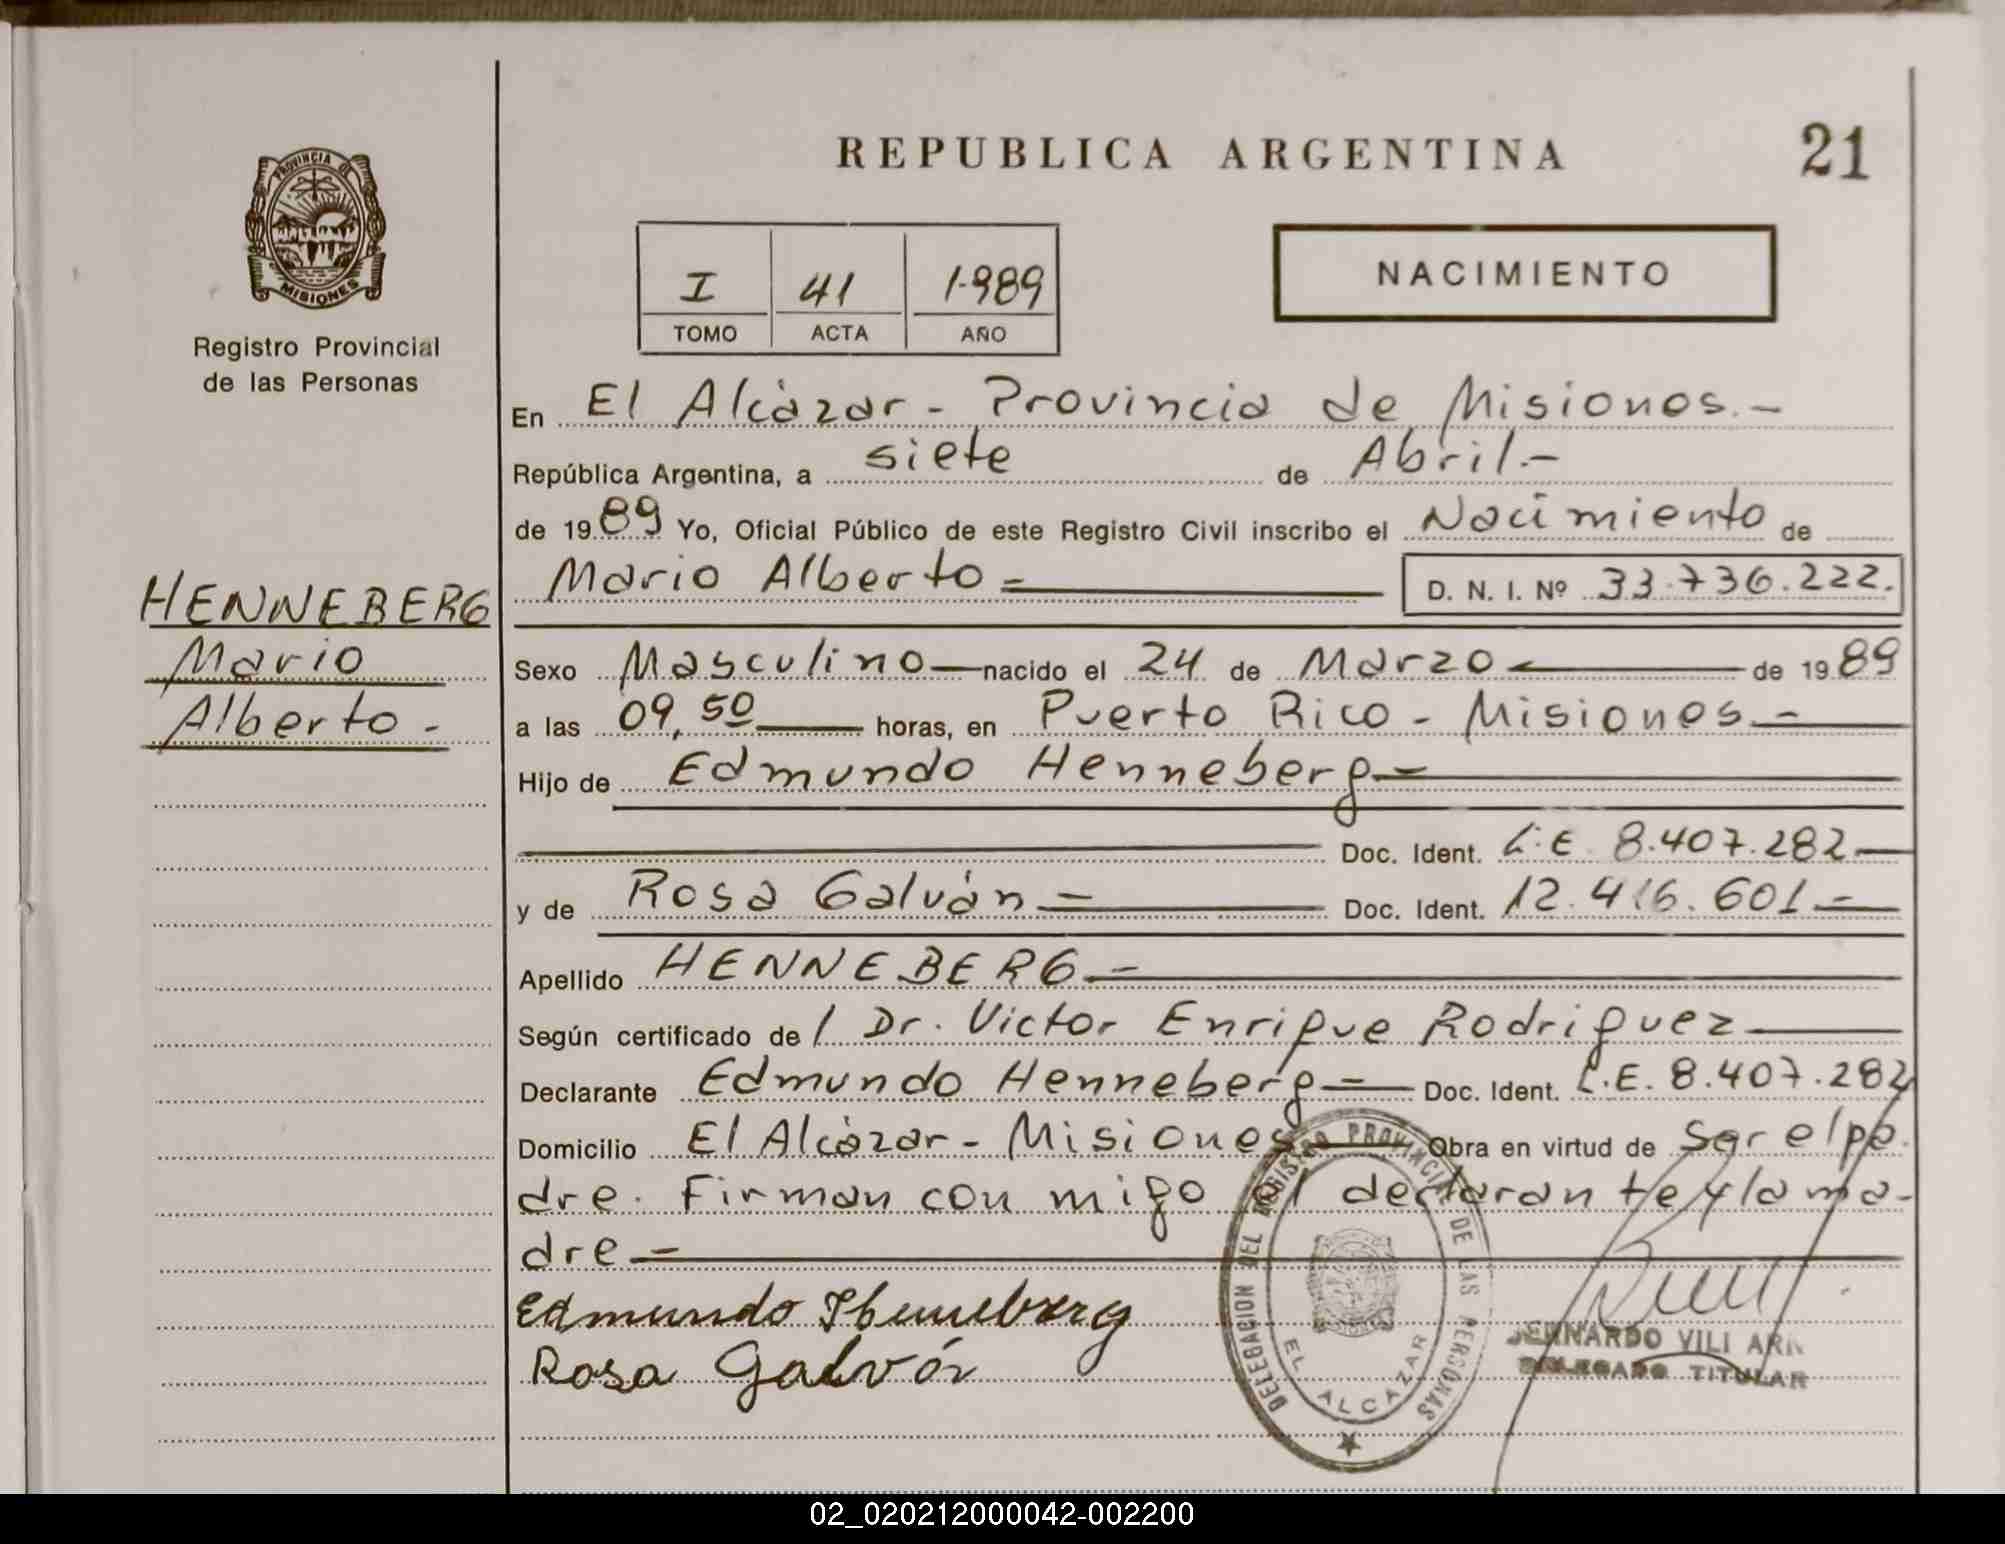 REPUBLICA ARGENTINA
21
PROVINCIA DE
MISIONES
Registro Provincial
de las Personas
I 41 1989
TOMO ACTA AÑO
NACIMIENTO
En El Alcázar - Provincia de Misiones.-
República Argentina, a siete de Abril.-
de 1989 Yo, Oficial Público de este Registro Civil inscribo el Nacimiento de
Mario Alberto = D. N. I. Nº 33.736.222.
HENNEBERG
Mario
Alberto -
Sexo Masculino nacido el 24 de Marzo de 1989
a las 09,50 horas, en Puerto Rico - Misiones -
Hijo de Edmundo Henneberg -
Doc. Ident. L.E 8.407.282
y de Rosa Galván - Doc. Ident. 12.416.601 -
Apellido HENNEBERG -
Según certificado de / Dr. Victor Enrique Rodriguez
Declarante Edmundo Henneberg - Doc. Ident. L.E. 8.407.282
Domicilio El Alcázar - Misiones Obra en virtud de Ser el pa
dre. Firman con migo el declarante y la ma-
dre -
Edmundo Henneberg
Rosa Galván
DELEGACION DEL REGISTRO PROVINCIAL DE LAS PERSONAS
EL ALCAZAR
BERNARDO VILI
DELEGADO TITULAR
02_020212000042-002200